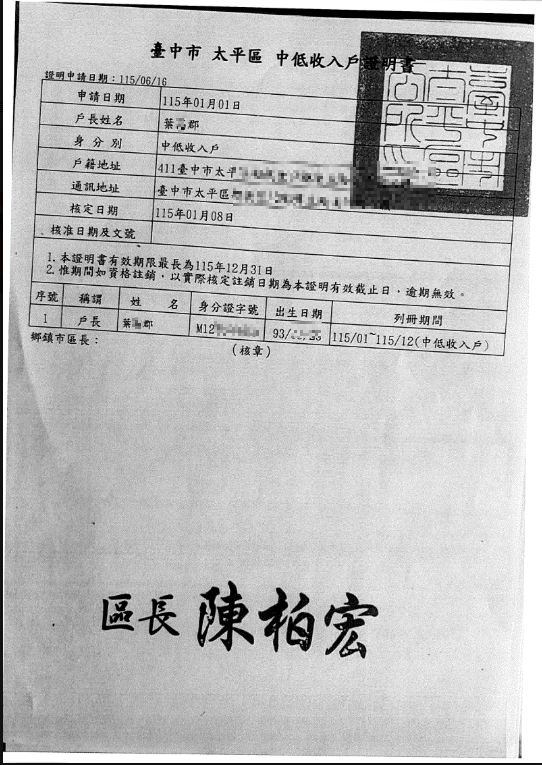 臺中市 太平區 中低收入戶證明書
證明申請日期：115/06/16
申請日期 115年01月01日
戶長姓名 葉 郡
身分別 中低收入戶
戶籍地址 411臺中市太平
通訊地址 臺中市太平區
核定日期 115年01月08日
核准日期及文號
1.本證明書有效期限最長為115年12月31日
2.惟期間如資格註銷，以實際核定註銷日期為本證明有效截止日，逾期無效。
序號 稱謂 姓 名 身分證字號 出生日期 列冊期間
1 戶長 葉 郡 M12 93/ 115/01~115/12(中低收入戶)
鄉鎮市區長： (核章)
區長 陳柏宏